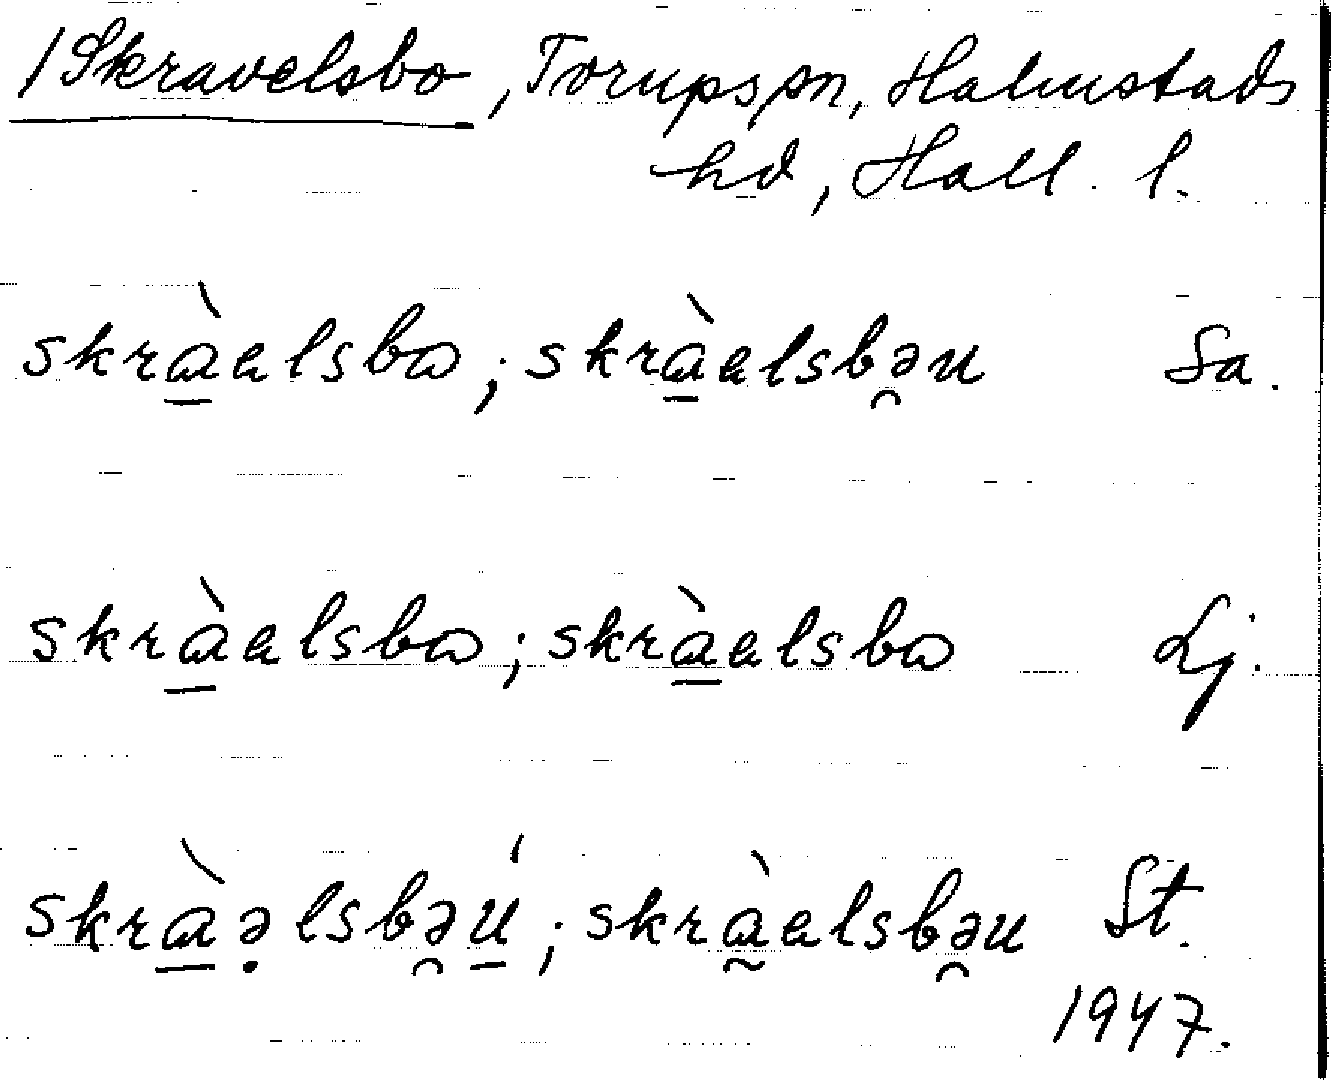 /Skravelsbo, Torups sn, Halmstads
hd, Hall. l.
skràelsbo; skràelsbəu Sa.
skràelsbo; skràelsbo Lj.
skràəlsbəú; skràelsbəu St.
1947.